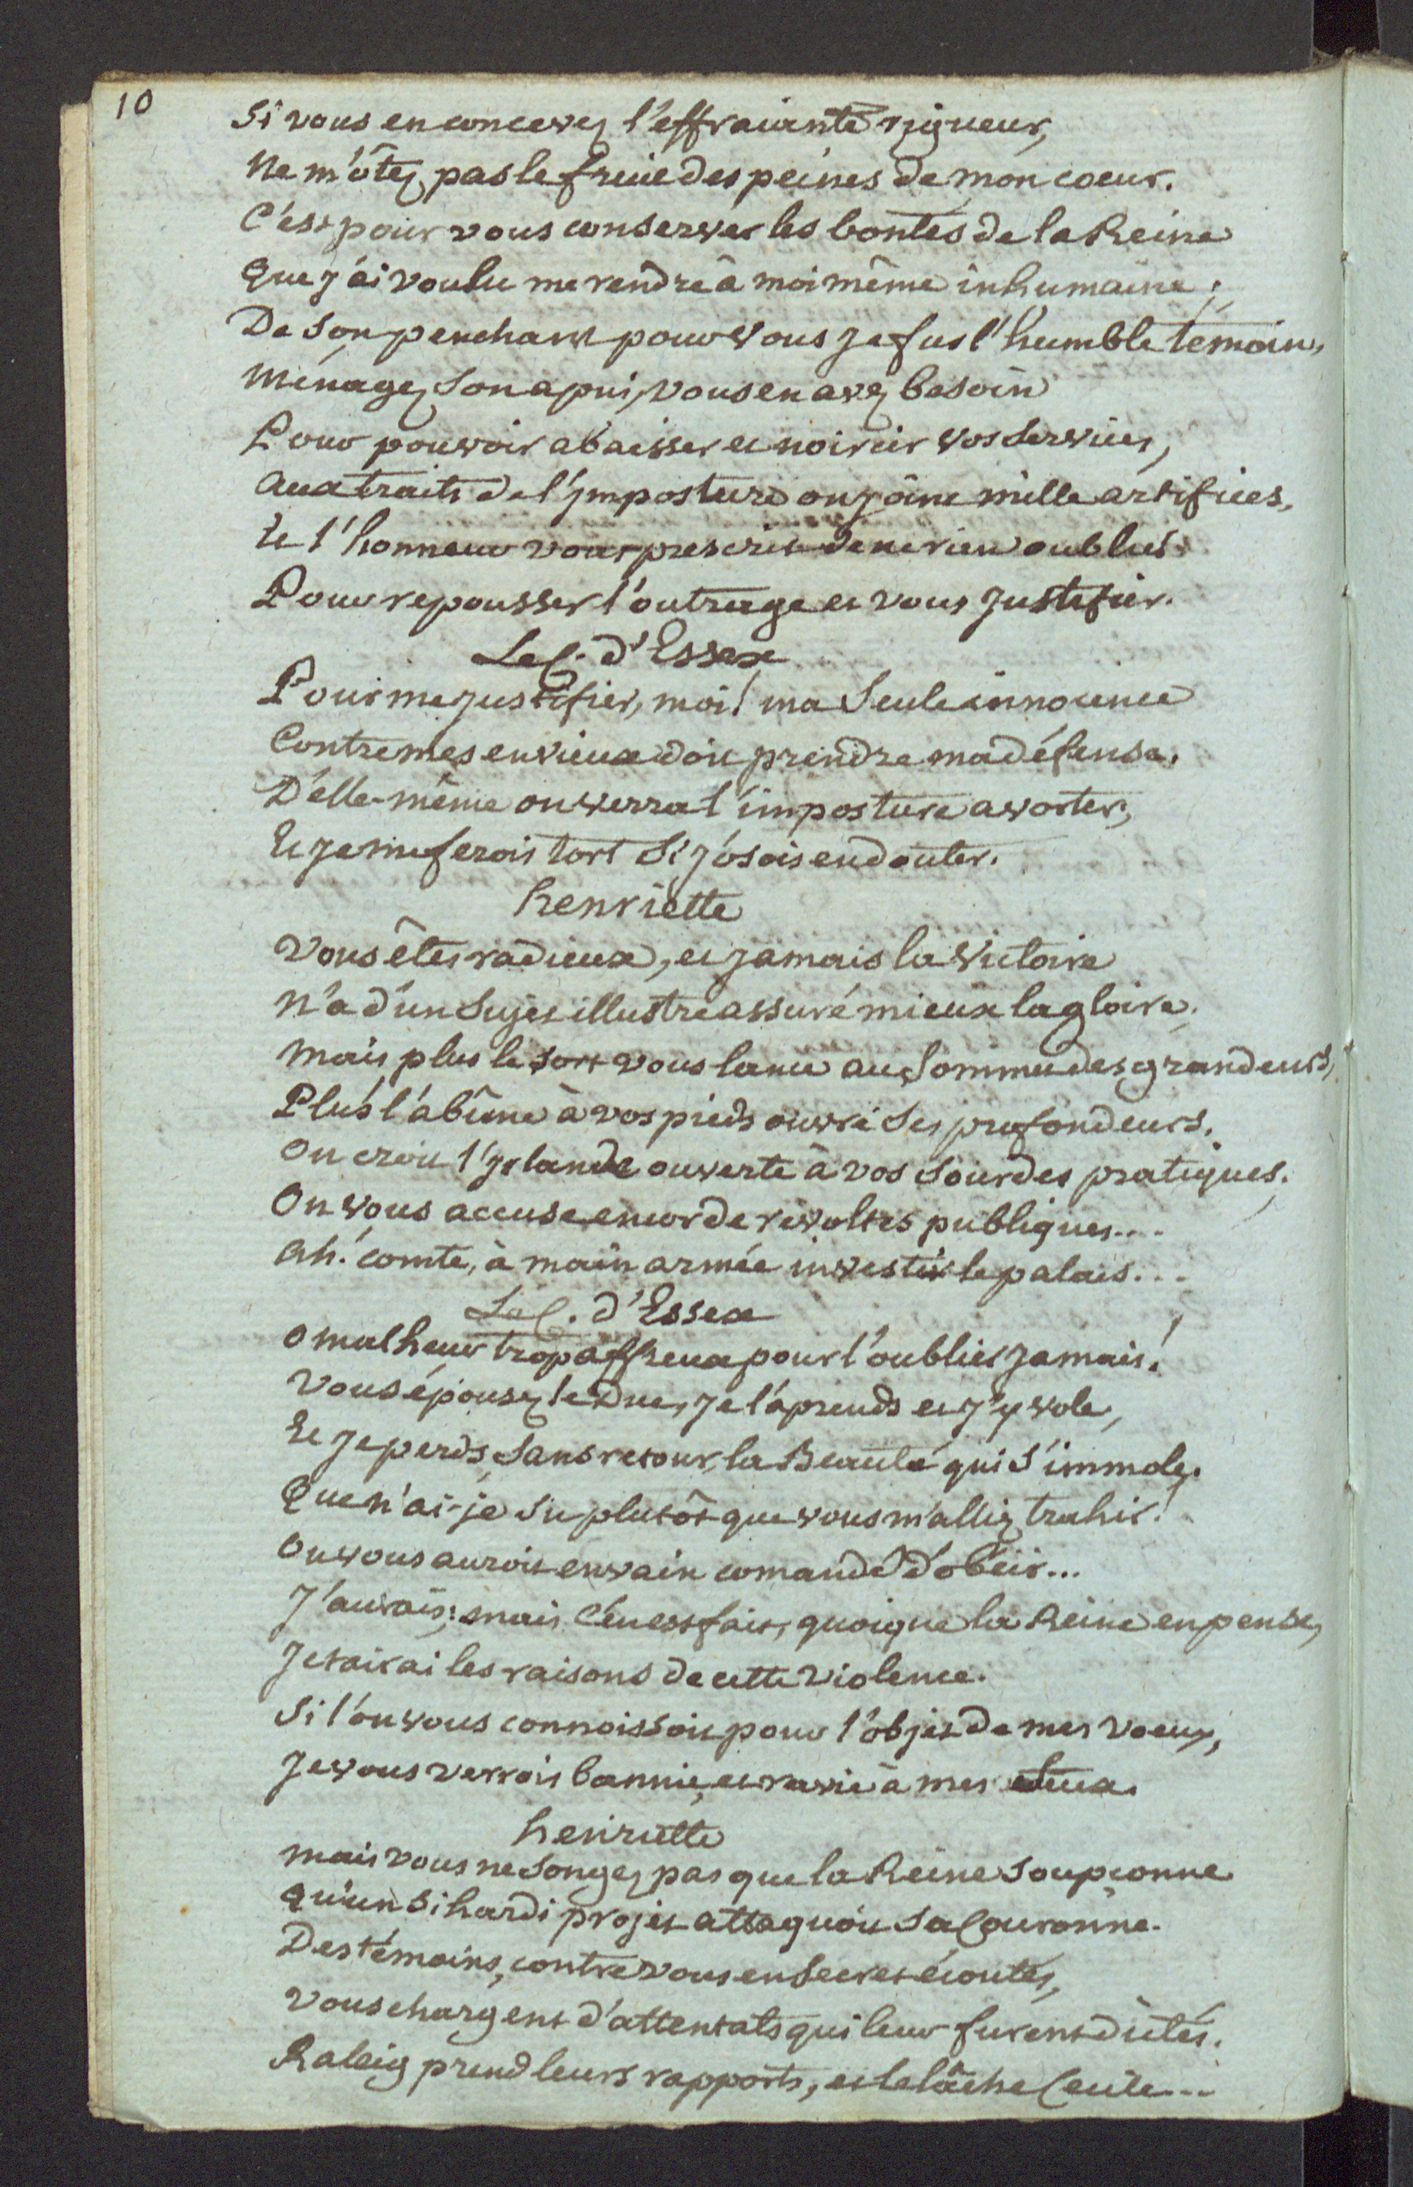 10
Si vous en concevez l'effraiante rigueur,
Ne m'ôtez pas le fruit des peines de mon coeur.
C'est pour vous conserver les bontés de la Reine
Que j'ai voulu me rendre à moi même inhumaine;
De son penchant pour vous je fus l'humble témoin,
Ménagez son apui, vous en avez besoin
Pour pouvoir abaisser et noircir vos services,
Aux traits de l'imposture on joint mille artifices,
Et l'honneur vous prescrit de ne rien oublier
Pour repousser l'outrage et vous justifier.
Le C. d'Essex
Pour me justifier, moi! ma seule innocence
Contre mes envieux doit prendre ma défense.
D'elle-même on verra l'imposture avorter,
Et je me ferois tort si j'osois en douter.
henriette
Vous êtes radieux, et jamais la victoire
N'a d'un sujet illustre assuré mieux la gloire.
Mais plus le sort vous lance au sommet des grandeurs,
Plus l'abîme à vos pieds ouvre ses profondeurs.
On croit l'Irlande ouverte à vos sourdes pratiques.
On vous accuse encor de révoltes publiques....
Ah! comte, à main armée investir le palais...
Le C. d'Essex
O malheur trop affreux pour l'oublier jamais!
Vous épousez le Duc, je l'aprends et j'y vole,
Et je perds sans retour, la Beauté qui s'immole.
Que n'ai-je su plutôt que vous m'alliez trahir!
On vous auroit en vain comandé d'obéir...
J'aurais; mais c'en est fait, quoique la Reine en pense,
Je tairai les raisons de cette violence.
Si l'on vous connoissoit pour l'objet de mes voeux,
Je vous verrois bannie, et ravie à mes
henriette
Mais vous ne songez pas que la Reine soupçonne
Qu'un si hardi projet attaquoit sa Couronne.
Des témoins, contre vous en secret écoutés,
Vous chargent d'attentats qui leur furent dictés.
Raleig prend leurs rapports, et le lâche Cecile...